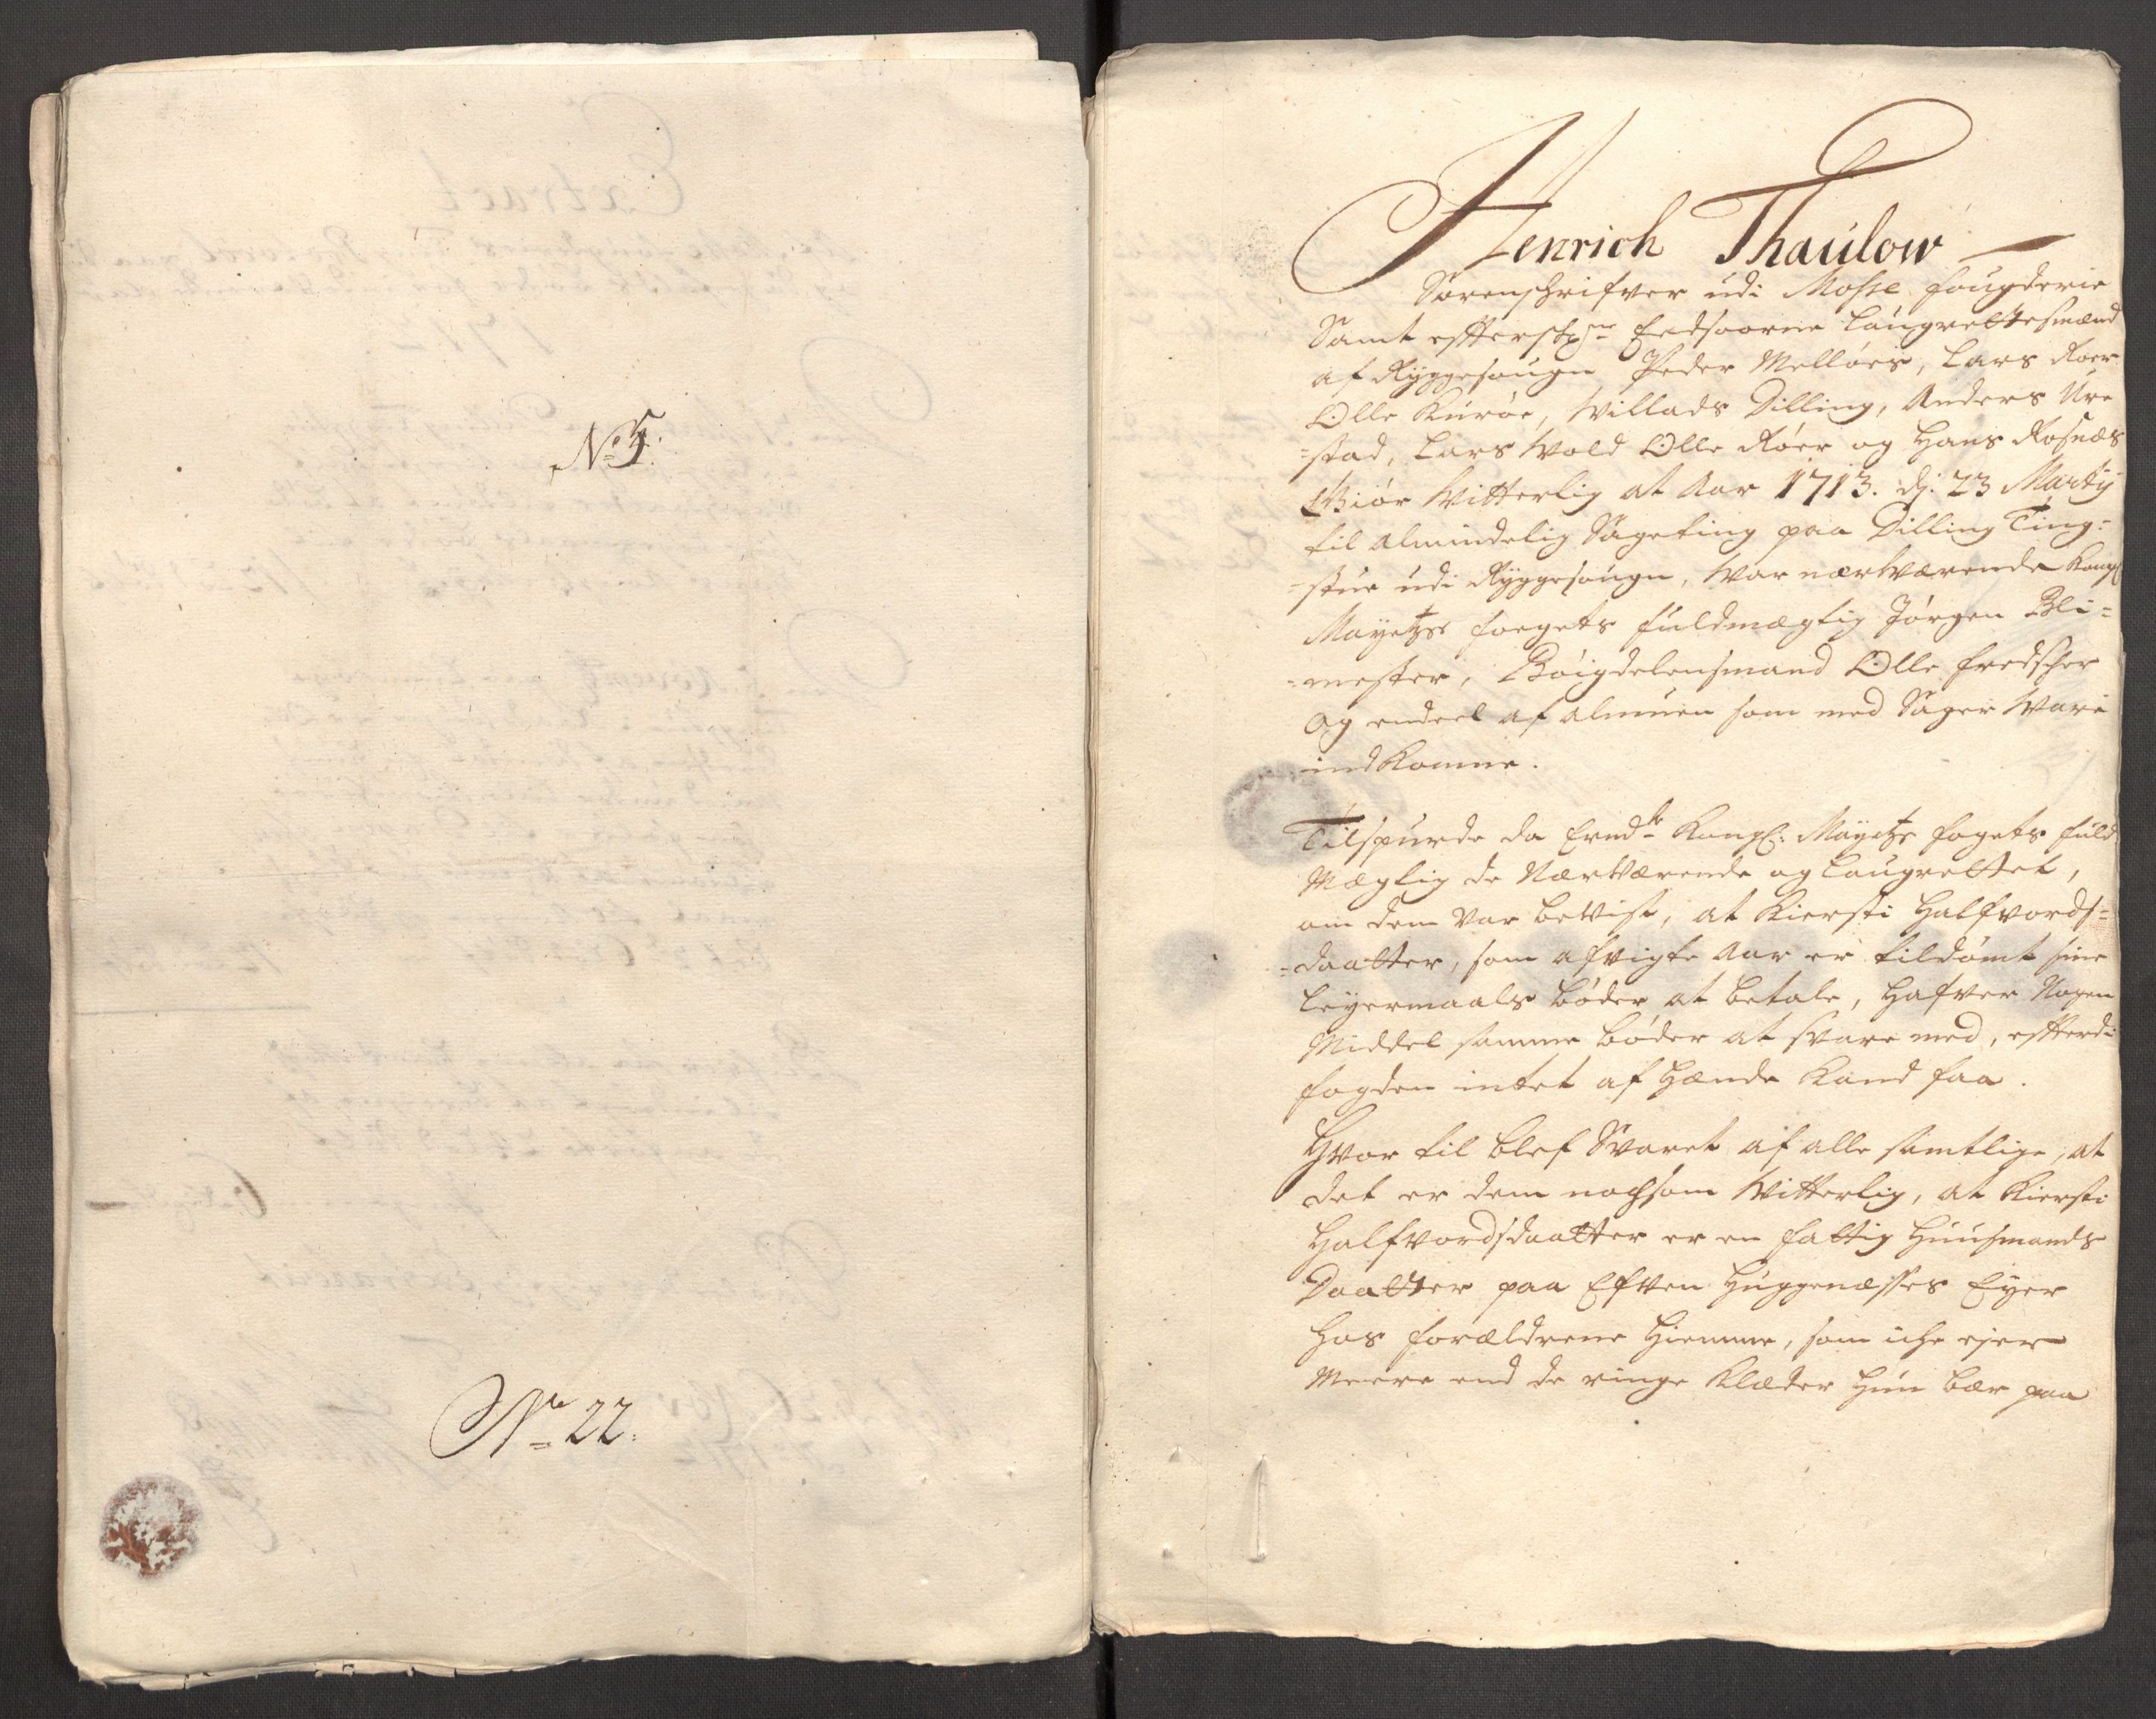 No 5.
No 22.
Henrich Thaulow
Sorenschrifver udi Mosse fougderie
Samt effterschne Eedsoorne Laugrettesmænd
af Ryggesougn Peder Melløes, Lars Roer
Olle Kurøe, Willads Dilling, Anders Ure
=stad, Lars Wold Olle Röer og Hans Rosnæs
Giør Witterlig at Aar 1713. dj: 23 Martij
til almindelig Sageting paa Dilling Ting=
=stue udi Ryggesougn, War nærWærende Kongl
Mayetzs fogets fuldmægtig Jørgen Bli=
=mester, Böigdelensmand Olle Fredscher
og endeel af almuen som med Sager Ware
indkomne.
Tilspurde da Ermdte Kongl: Mayetzs fogets fuld
Mægtig de NærWærende og Laugrettet,
om dem var beviist, at Kiersti Halfvords=
=daatter, som afvigte Aar er tildømt sine
Leyermaals bøder at betale, Hafver Nogen
Middel samme bøder at svare med, effterdi
fogden intet af Hænde Kand faa.
Hvor til blef Svaret af alle samtlige, at
det er dem nochsom Witterlig, at Kiersti
Halfvordsdaatter er en fattig Huusmands
Daatter paa Efven Huggenæsses Eyer
Hos forældrene Hiemme, som iche ejer
Meere end de ringe Klæder Hun bær paa